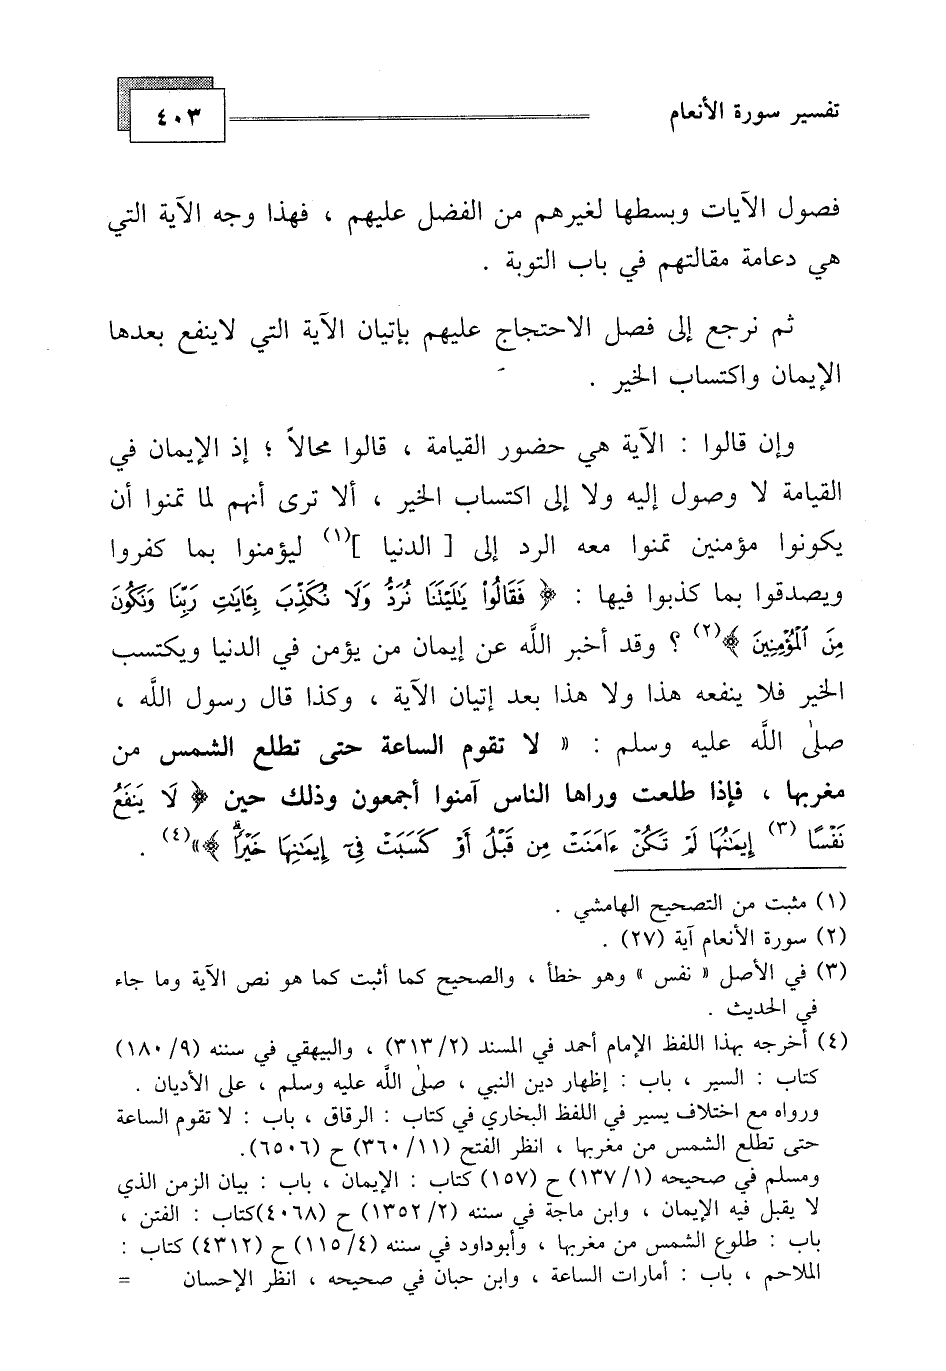 تفسير سورة الأنعام
٤٠٣
فصول الآيات وبسطها لغيرهم من الفضل عليهم ، فهذا وجه الآية التي
هي دعامة مقالتهم في باب التوبة .
ثم نرجع إلى فصل الاحتجاج عليهم بإتيان الآية التي لاينفع بعدها
الإيمان واكتساب الخير .
وإن قالوا : الآية هي حضور القيامة ، قالوا محالاً ؛ إذ الإيمان في
القيامة لا وصول إليه ولا إلى اكتساب الخير ، ألا ترى أنهم لما تمنوا أن
يكونوا مؤمنين تمنوا معه الرد إلى [ الدنيا ](١) ليؤمنوا بما كفروا
ويصدقوا بما كذبوا فيها : ﴿ فَقَالُوا۟ يَٰلَيْتَنَا نُرَدُّ وَلَا نُكَذِّبَ بِـَٔايَٰتِ رَبِّنَا وَنَكُونَ
مِنَ ٱلْمُؤْمِنِينَ ﴾(٢) ؟ وقد أخبر اللَّه عن إيمان من يؤمن في الدنيا ويكتسب
الخير فلا ينفعه هذا ولا هذا بعد إتيان الآية ، وكذا قال رسول اللَّه ،
صلى اللَّه عليه وسلم : « لا تقوم الساعة حتى تطلع الشمس من
مغربها ، فإذا طلعت وراها الناس آمنوا أجمعون وذلك حين ﴿ لَا يَنفَعُ
نَفْسًا (٣) إِيمَٰنُهَا لَمْ تَكُنْ ءَامَنَتْ مِن قَبْلُ أَوْ كَسَبَتْ فِىٓ إِيمَٰنِهَا خَيْرًاۗ ﴾»(٤) .
(١) مثبت من التصحيح الهامشي .
(٢) سورة الأنعام آية (٢٧) .
(٣) في الأصل « نفس » وهو خطأ ، والصحيح كما أثبت كما هو نص الآية وما جاء
في الحديث .
(٤) أخرجه بهذا اللفظ الإمام أحمد في المسند (٣١٣/٢) ، والبيهقي في سننه (١٨٠/٩)
كتاب : السير ، باب : إظهار دين النبي ، صلى اللَّه عليه وسلم ، على الأديان .
ورواه مع اختلاف يسير في اللفظ البخاري في كتاب : الرقاق ، باب : لا تقوم الساعة
حتى تطلع الشمس من مغربها ، انظر الفتح (٣٦٠/١١) ح (٦٥٠٦).
ومسلم في صحيحه (١٣٧/١) ح (١٥٧) كتاب : الإيمان ، باب : بيان الزمن الذي
لا يقبل فيه الإيمان ، وابن ماجة في سننه (١٣٥٢/٢) ح (٤٠٦٨)كتاب : الفتن ،
باب : طلوع الشمس من مغربها ، وأبوداود في سننه (١١٥/٤) ح (٤٣١٢) كتاب :
الملاحم ، باب : أمارات الساعة ، وابن حبان في صحيحه ، انظر الإحسان =